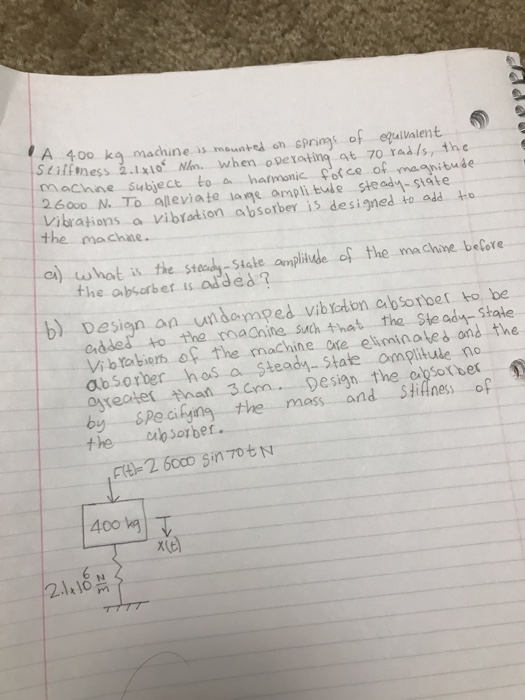 A 400 kg machine is mounted on springs of equivalent
Stiffness 2.1x10⁶ N/m. When operating at 70 rad/s, the
machine subject to a harmonic force of magnitude
26000 N. To alleviate large amplitude steady-state
vibrations a vibration absorber is designed to add to
the machine.
a) what is the steady-state amplitude of the machine before
the absorber is added?
b) Design an undamped vibration absorber to be
added to the machine such that the steady-state
vibrations of the machine are eliminated and the
absorber has a steady-state amplitude no
greater than 3cm. Design the absorber
by specifying the mass and stiffness of
the absorber.
F(t)=26000 sin70t N
400 kg
x(t)
2.1x10⁶ N/m